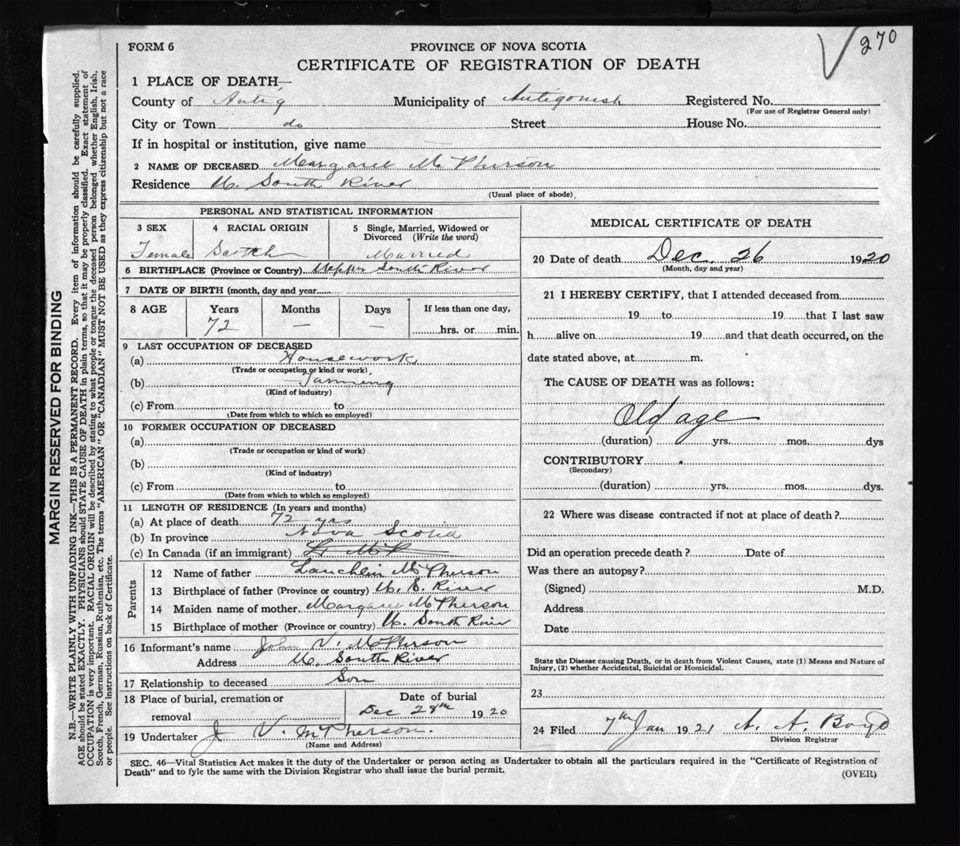 FORM 6
PROVINCE OF NOVA SCOTIA
CERTIFICATE OF REGISTRATION OF DEATH
270
1 PLACE OF DEATH—
County of Antig Municipality of Antigonish Registered No.
(For use of Registrar General only)
City or Town do Street House No.
If in hospital or institution, give name
2 NAME OF DECEASED Margaret McPherson
Residence U. South River
(Usual place of abode)
PERSONAL AND STATISTICAL INFORMATION
3 SEX 4 RACIAL ORIGIN 5 Single, Married, Widowed or Divorced (Write the word)
Female Scotch Married
6 BIRTHPLACE (Province or Country) Upper South River
7 DATE OF BIRTH (month, day and year
8 AGE Years Months Days If less than one day,
72 — — hrs. or min.
9 LAST OCCUPATION OF DECEASED
(a) Housework
(Trade or occupation or kind or work)
(b) Farming
(Kind of industry)
(c) From to
(Date from which to which so employed)
10 FORMER OCCUPATION OF DECEASED
(a)
(Trade or occupation or kind of work)
(b)
(Kind of industry)
(c) From to
(Date from which to which so employed)
11 LENGTH OF RESIDENCE (In years and months)
(a) At place of death 72 yrs
(b) In province Nova Scotia
(c) In Canada (if an immigrant)
Parents
12 Name of father Lauchlin McPherson
13 Birthplace of father (Province or country) U. S. River
14 Maiden name of mother Margaret McPherson
15 Birthplace of mother (Province or country) U. South River
16 Informant's name John V. McPherson
Address U. South River
17 Relationship to deceased Son
18 Place of burial, cremation or removal Date of burial
Dec 28th 1920
19 Undertaker J V. McPherson.
(Name and Address)
MEDICAL CERTIFICATE OF DEATH
20 Date of death Dec. 26 1920
(Month, day and year)
21 I HEREBY CERTIFY, that I attended deceased from
19 to 19 that I last saw
h alive on 19 and that death occurred, on the
date stated above, at m.
The CAUSE OF DEATH was as follows:
Old age
(duration) yrs. mos. dys
CONTRIBUTORY
(Secondary)
(duration) yrs. mos. dys.
22 Where was disease contracted if not at place of death?
Did an operation precede death? Date of
Was there an autopsy?
(Signed) M.D.
Address
Date
State the Disease causing Death, or in death from Violent Causes, state (1) Means and Nature of
Injury, (2) whether Accidental, Suicidal or Homicidal.
23
24 Filed 7th Jan 1921 A. A. Boyd
Division Registrar
SEC. 46—Vital Statistics Act makes it the duty of the Undertaker or person acting as Undertaker to obtain all the particulars required in the "Certificate of Registration of
Death" and to fyle the same with the Division Registrar who shall issue the burial permit.
(OVER)
MARGIN RESERVED FOR BINDING
N.B.—WRITE PLAINLY WITH UNFADING INK—THIS IS A PERMANENT RECORD. Every item of information should be carefully supplied.
AGE should be stated EXACTLY. PHYSICIANS should STATE CAUSE OF DEATH in plain terms, so that it may be properly classified. Exact statement of
OCCUPATION is very important. RACIAL ORIGIN will be described by stating to what people or tongue the deceased person belonged whether English, Irish,
Scotch, French, German, Russian, Ruthenian, etc. The terms "AMERICAN" OR "CANADIAN" MUST NOT BE USED as they express citizenship but not a race
or people. See instructions on back of Certificate.